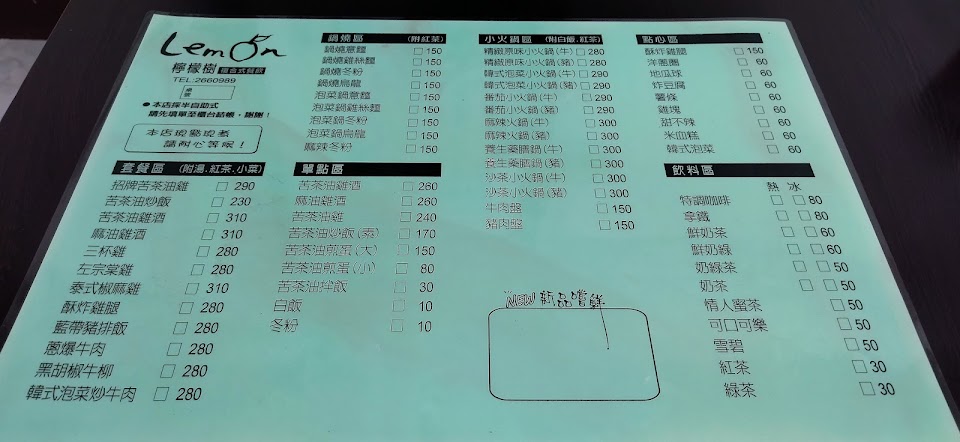 Lemon
檸檬樹 複合式餐飲
TEL:2660989
桌號
●本店採半自助式
請先填單至櫃台結帳，謝謝！
本店現點現煮
請耐心等候！
套餐區 (附湯.紅茶.小菜)
招牌苦茶油雞 □ 290
苦茶油炒飯 □ 230
苦茶油雞酒 □ 310
麻油雞酒 □ 310
三杯雞 □ 280
左宗棠雞 □ 280
泰式椒麻雞 □ 310
酥炸雞腿 □ 280
藍帶豬排飯 □ 280
蔥爆牛肉 □ 280
黑胡椒牛柳 □ 280
韓式泡菜炒牛肉 □ 280
鍋燒區 (附紅茶)
鍋燒意麵 □ 150
鍋燒雞絲麵 □ 150
鍋燒冬粉 □ 150
鍋燒烏龍 □ 150
泡菜鍋意麵 □ 150
泡菜鍋雞絲麵 □ 150
泡菜鍋冬粉 □ 150
泡菜鍋烏龍 □ 150
麻辣冬粉 □ 150
單點區
苦茶油雞酒 □ 260
麻油雞酒 □ 260
苦茶油雞 □ 240
苦茶油炒飯(素) □ 170
苦茶油煎蛋(大) □ 150
苦茶油煎蛋(小) □ 80
苦茶油拌飯 □ 30
白飯 □ 10
冬粉 □ 10
小火鍋區 (附白飯.紅茶)
精緻原味小火鍋(牛) □ 280
精緻原味小火鍋(豬) □ 280
韓式泡菜小火鍋(牛) □ 290
韓式泡菜小火鍋(豬) □ 290
番茄小火鍋(牛) □ 290
番茄小火鍋(豬) □ 290
麻辣火鍋(牛) □ 300
麻辣火鍋(豬) □ 300
養生藥膳鍋(牛) □ 300
養生藥膳鍋(豬) □ 300
沙茶小火鍋(牛) □ 300
沙茶小火鍋(豬) □ 300
牛肉盤 □ 150
豬肉盤 □ 150
NEW 新品嚐鮮
點心區
酥炸雞腿 □ 150
洋蔥圈 □ 60
地瓜球 □ 60
炸豆腐 □ 60
薯條 □ 60
雞塊 □ 60
甜不辣 □ 60
米血糕 □ 60
韓式泡菜 □ 60
飲料區
熱 冰
特調咖啡 □ □ 80
拿鐵 □ □ 80
鮮奶茶 □ □ 60
鮮奶綠 □ □ 60
奶綠茶 □ □ 50
奶茶 □ □ 50
情人蜜茶 □ 50
可口可樂 □ 50
雪碧 □ 50
紅茶 □ 30
綠茶 □ 30